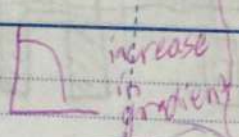 increase
in
gradient